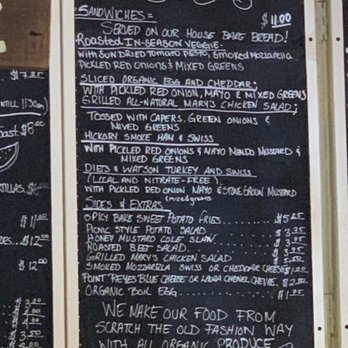 SANDWICHES = $11.00
SERVED ON OUR HOUSE BAKE BREAD!
Roasted IN-SEASON VEGGIE.
WITH SUN DRIED TOMATO PESTO, SMOKED MOZZARELLA
PICKLED RED ONIONS & MIXED GREENS
SLICED ORGANIC EGG AND CHEDDAR;
WITH PICKLED RED ONION, MAYO & MIXED GREENS
GRILLED ALL-NATURAL MARY'S CHICKEN SALAD;
TOSSED WITH CAPERS, GREEN ONIONS &
MIXED GREENS
HICKORY SMOKE HAM & SWISS
WITH PICKLED RED ONIONS & MAYO MUSTARD &
MIXED GREENS
DIETS & WATSON TURKEY AND SWISS
(LOCAL AND NITRATE-FREE)
WITH PICKLED RED ONION MAYO & STONE GROUND MUSTARD
(mixed greens)
SIDES & EXTRAS
SPICY BAKE SWEET POTATO FRIES $5.25
PICNIC STYLE POTATO SALAD $3.95
HONEY MUSTARD COLE SLAW
ROASTED BEET SALAD
GRILLED MARY'S CHICKEN SALAD
SMOKED MOZZARELLA SWISS OR CHEDDAR CHEESE $1.00
POINT REYES BLUE CHEESE OR LAURA CHENEL CHEVRE $2.00
ORGANIC BOIL EGG $1.95
WE MAKE OUR FOOD FROM
SCRATCH THE OLD FASHION WAY
WITH ALL ORGANIC PRODUCE